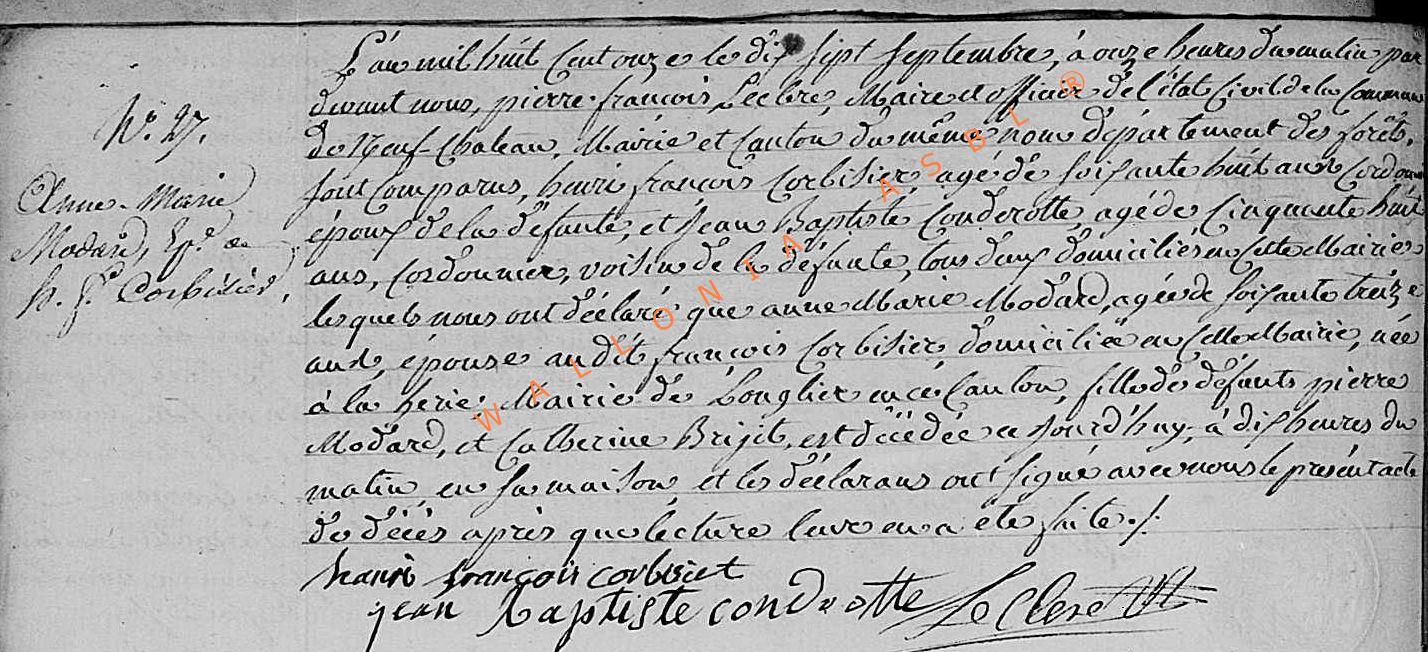 L'an mil huit Cent onze le dix sept septembre, à onze heures du matin par
devant nous, pierre françois Leclere, Maire et officier de l'état Civil de la Commune
de Neuf-Chateau, Mairie et Canton du même nom département des forêts,
sont Comparus, henri françois Corbisier, agé de soixante huit ans Cordonnier
époux de la défunte, et Jean Baptiste Conderotte agé de Cinquante huit
ans, Cordonnier, voisin de la défunte, tous deux domiciliés en Cette Mairie
lesquels nous ont déclaré que anne Marie Modard, agée de soixante treize
ans, épouse audit françois Corbisier domiciliée en Cette Mairie, née
à la herie, Mairie de Longlier en ce Canton, fille de défunts pierre
Modard, et Catherine Brijit, est décédée ce Jourd'huy, à dix heures du
matin, en sa maison, et les déclarans ont signé avec nous le présent acte
de décès après que lecture leur en a été faite ./.
henri françois corbisiet
jean Baptiste conderotte LeClere
N.° 27.
Anne Marie
Modard, Ep.e de
h. f. Corbisier,
WALLONIA ASBL ®